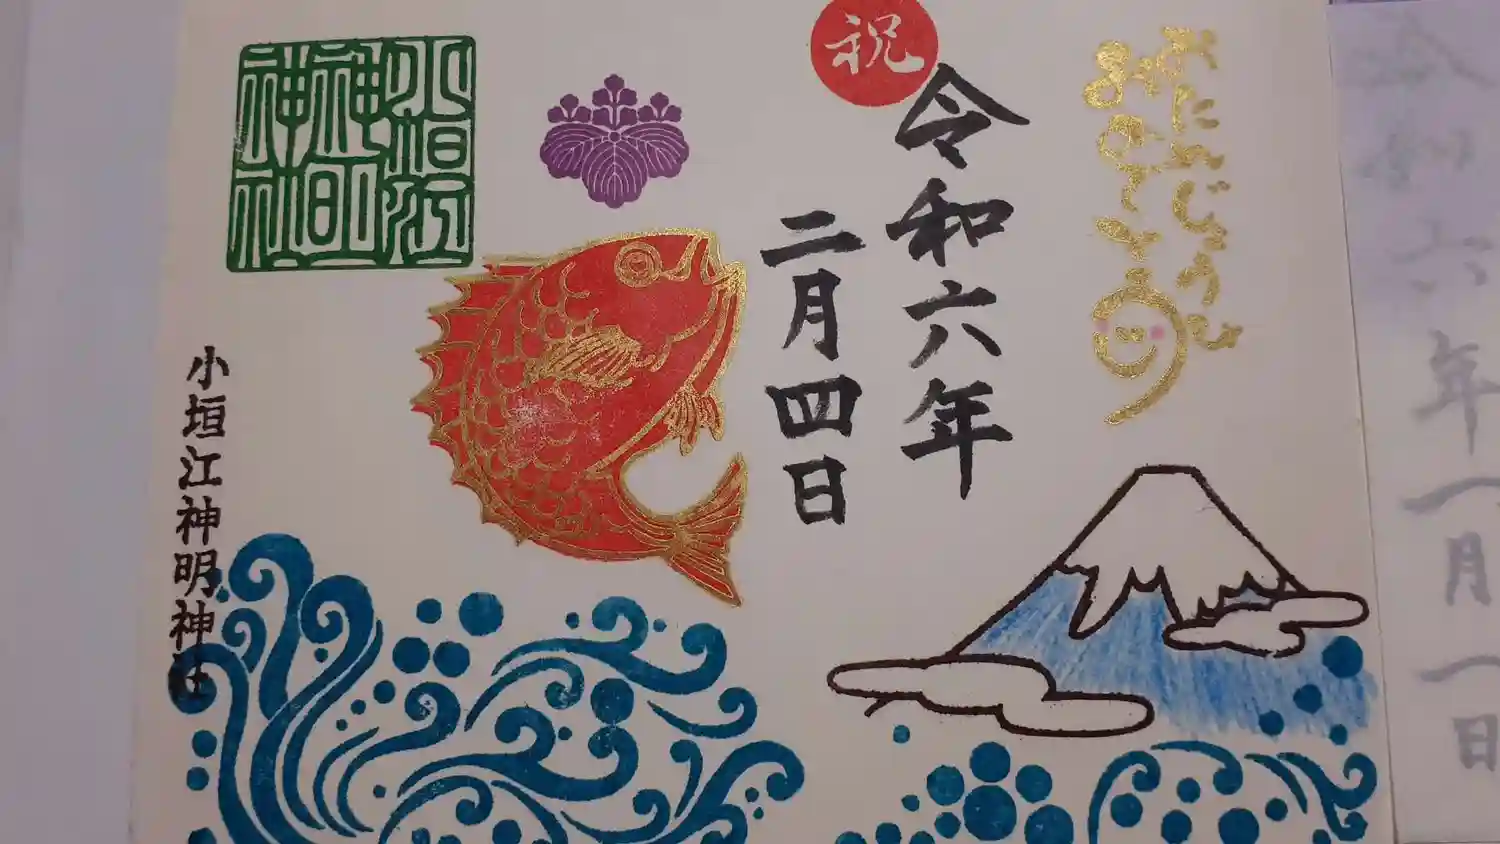 令和六年一月一日
おたんじょうび
おめでとう
祝
令和六年
二月四日
小垣江
神明
神社
小垣江神明神社